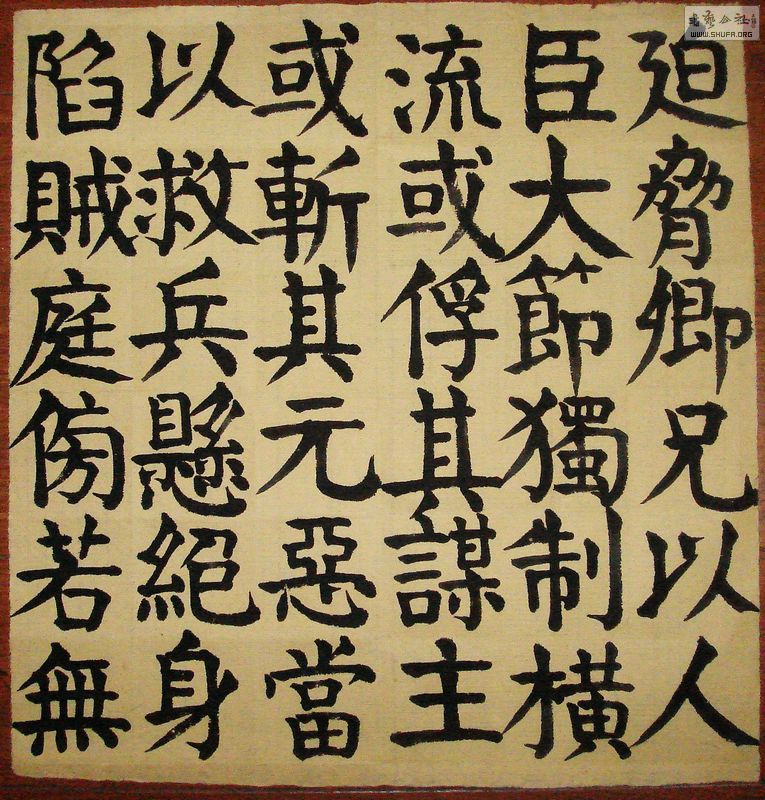 廹脅卿兄以人
臣大節獨制橫
流或俘其謀主
或斬其元惡當
以救兵懸絕身
陷賊庭傍若無
书藝公社
WWW.SHUFA.ORG